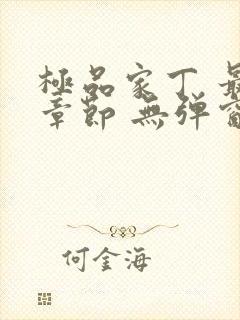 極品家丁 最
章節 無彈窗
何金海